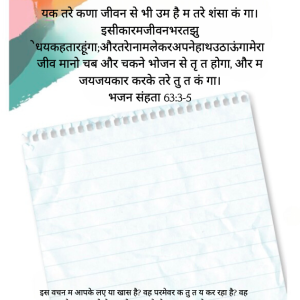 यक तरे कणा जीवन से भी उम है म तरे शंसा कं गा।
इसीकारमजीवनभरतझु
ेधयकहतारहूंगा;औरतरेनामलेकरअपनेहाथउठाऊंगामेरा
जीव मानो चब और चकने भोजन से तृ त होगा, और म
जयजयकार करके तरे तु त कं गा।
भजन संहता 63:3-5
इस वचन म आपके लए या खास है? वह परमेवर क तु त य कर रहा है? वह